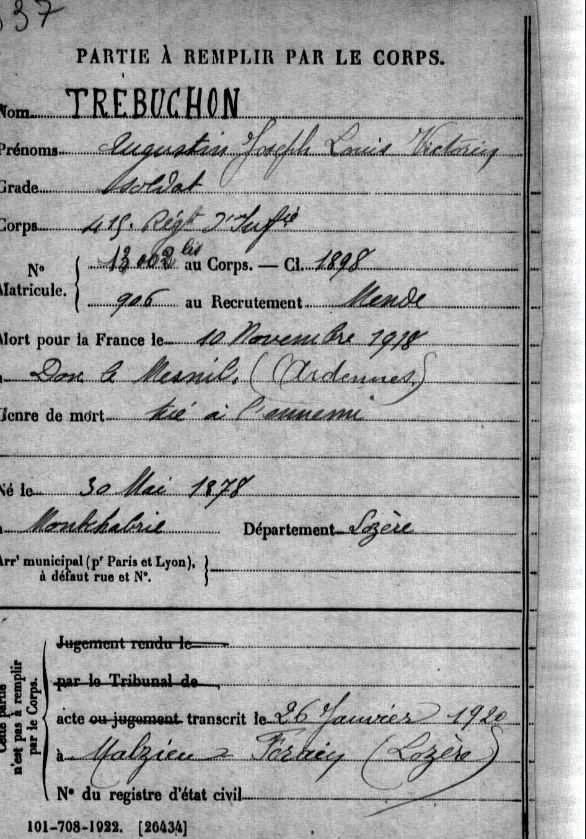 337
PARTIE À REMPLIR PAR LE CORPS.
Nom TRÉBUCHON
Prénoms Augustin Joseph Louis Victorin
Grade Soldat
Corps 415. Régt d'Inftie
N° Matricule. 13002 bis au Corps. — Cl. 1898
906 au Recrutement Mende
Mort pour la France le 10 Novembre 1918
à Dom le Mesnil. (Ardennes)
Genre de mort tué à l'ennemi
Né le 30 Mai 1878
à Montchabrie Département Lozère
Arrt municipal (pr Paris et Lyon),
à défaut rue et N°.
Cette partie n'est pas à remplir par le Corps.
Jugement rendu le
par le Tribunal de
acte ou jugement transcrit le 26 Janvier 1920
à Malzieu Forain (Lozère)
N° du registre d'état civil
101-708-1922. [26434]